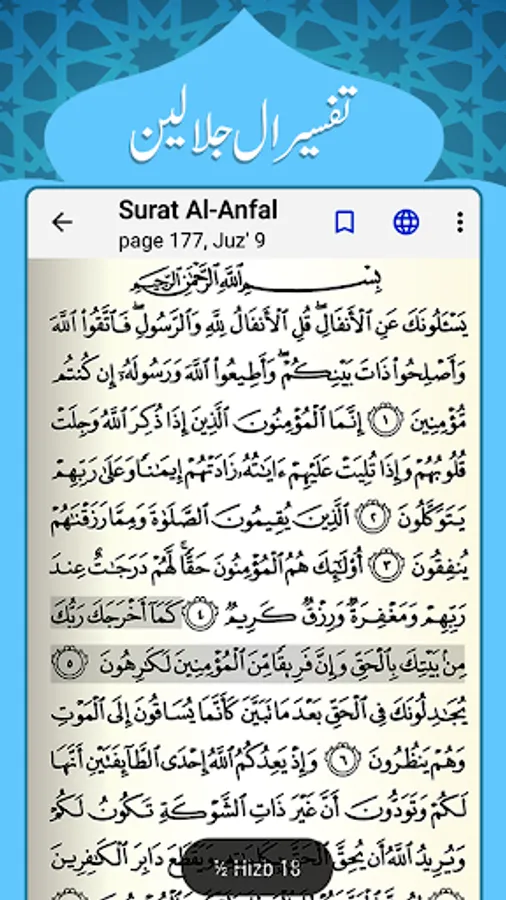 تفسیر ال جلالین
Surat Al-Anfal
page 177, Juz' 9
بِسْمِ اللَّهِ الرَّحْمَٰنِ الرَّحِيمِ
يَسْـَٔلُونَكَ عَنِ الْأَنفَالِ ۖ قُلِ الْأَنفَالُ لِلَّهِ وَالرَّسُولِ ۖ فَاتَّقُوا۟ اللَّهَ
وَأَصْلِحُوا۟ ذَاتَ بَيْنِكُمْ ۖ وَأَطِيعُوا۟ اللَّهَ وَرَسُولَهُۥٓ إِن كُنتُم
مُّؤْمِنِينَ ١ إِنَّمَا الْمُؤْمِنُونَ الَّذِينَ إِذَا ذُكِرَ اللَّهُ وَجِلَتْ
قُلُوبُهُمْ وَإِذَا تُلِيَتْ عَلَيْهِمْ ءَايَـٰتُهُۥ زَادَتْهُمْ إِيمَـٰنًا وَعَلَىٰ رَبِّهِمْ
يَتَوَكَّلُونَ ٢ الَّذِينَ يُقِيمُونَ الصَّلَوٰةَ وَمِمَّا رَزَقْنَـٰهُمْ
يُنفِقُونَ ٣ أُو۟لَـٰٓئِكَ هُمُ الْمُؤْمِنُونَ حَقًّا ۚ لَّهُمْ دَرَجَـٰتٌ عِندَ
رَبِّهِمْ وَمَغْفِرَةٌ وَرِزْقٌ كَرِيمٌ ٤ كَمَآ أَخْرَجَكَ رَبُّكَ
مِنۢ بَيْتِكَ بِالْحَقِّ وَإِنَّ فَرِيقًا مِّنَ الْمُؤْمِنِينَ لَكَـٰرِهُونَ ٥
يُجَـٰدِلُونَكَ فِى الْحَقِّ بَعْدَ مَا تَبَيَّنَ كَأَنَّمَا يُسَاقُونَ إِلَى الْمَوْتِ
وَهُمْ يَنظُرُونَ ٦ وَإِذْ يَعِدُكُمُ اللَّهُ إِحْدَى الطَّآئِفَتَيْنِ أَنَّهَا
لَكُمْ وَتَوَدُّونَ أَنَّ غَيْرَ ذَاتِ الشَّوْكَةِ تَكُونُ لَكُمْ
وَيُرِيدُ اللَّهُ أَن يُحِقَّ الْحَقَّ وَيَقْطَعَ دَابِرَ الْكَـٰفِرِينَ
½ Hizb 18